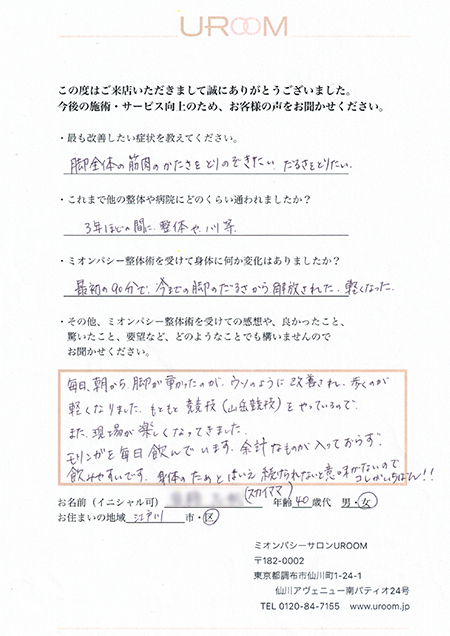 UROOM
この度はご来店いただきまして誠にありがとうございました。
今後の施術・サービス向上のため、お客様の声をお聞かせください。
・最も改善したい症状を教えてください。
脚全体の筋肉のかたさをとりのぞきたい。だるさをとりたい。
・これまで他の整体や病院にどのくらい通われましたか？
3年ほどの間に、整体や、ハリ等
・ミオンパシー整体術を受けて身体に何か変化はありましたか？
最初の90分で、今までの脚のだるさから解放された。軽くなった。
・その他、ミオンパシー整体術を受けての感想や、良かったこと、
驚いたこと、要望など、どのようなことでも構いませんので
お聞かせください。
毎日、朝から脚が重かったのが、ウソのように改善され、歩くのが
軽くなりました。もともと競技（山岳競技）をやっているので、
また、現場が楽しくなってきました。
モリンガを毎日飲んでいます。余計なものが入っておらず、
飲みやすいです。身体のためとはいえ続けられないと意味がないので
コレがいちばん!!
お名前（イニシャル可） (スカイママ) 年齢 40 歳代 男・女
お住まいの地域 江戸川 市・区
ミオンパシーサロンUROOM
〒182-0002
東京都調布市仙川町1-24-1
仙川アヴェニュー南パティオ24号
TEL 0120-84-7155 www.uroom.jp